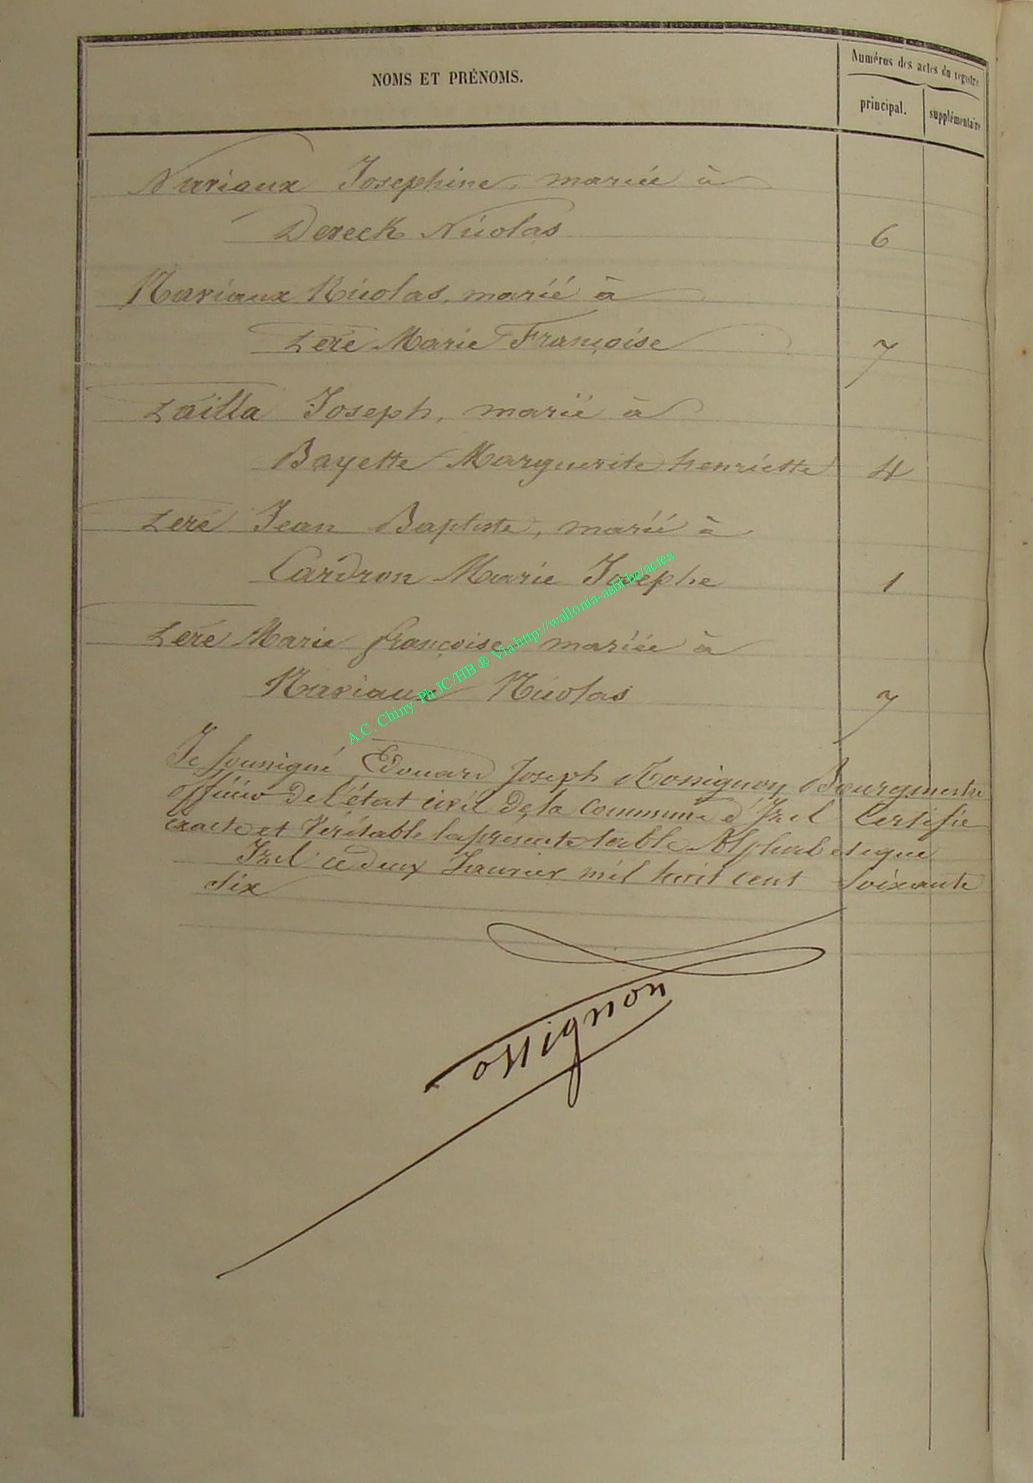 NOMS ET PRÉNOMS.
Numéros des actes du registre
principal.
supplémentaire
Naviaux Josephine, mariée à
Dereck Nicolas 6
Naviaux Nicolas, marié à
Zéré Marie Françoise 7
Zailla Joseph, marié à
Bayette Marguerite henriette 4
Zéré Jean Baptiste, marié à
Cardron Marie Josephe 1
Zéré Marie françoise, mariée à
Naviaux Nicolas 7
A.C. Chiny Ph JC/HB® Via http://wallonia-asbl.be/actes
Je Sousigné, Edouard Joseph Rossignon Bourgmestre
officier de l'état civil de la commune d'Izel Certifie
exacte et Véritable la presente table Alphabetique
Izel ce deux Janvier mil huit cent Soixante
Six
ossignon